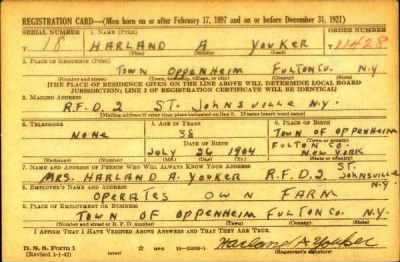 REGISTRATION CARD—(Men born on or after February 17, 1897 and on or before December 31, 1921)
SERIAL NUMBER 1. NAME (Print) ORDER NUMBER
18 HARLAND A YOUKER 11428
(First) (Middle) (Last)
2. PLACE OF RESIDENCE (Print)
TOWN OPPENHEIM FULTON CO. N.Y
(Number and street) (Town, township, village, or city) (County) (State)
[THE PLACE OF RESIDENCE GIVEN ON THE LINE ABOVE WILL DETERMINE LOCAL BOARD
JURISDICTION; LINE 2 OF REGISTRATION CERTIFICATE WILL BE IDENTICAL]
3. MAILING ADDRESS
R.F.D. 2 ST. JOHNSVILLE N.Y.
[Mailing address if other than place indicated on line 2. If same insert word same]
4. TELEPHONE 5. AGE IN YEARS 6. PLACE OF BIRTH
NONE 38 TOWN OF OPPENHEIM
DATE OF BIRTH FULTON CO.
JULY 26 1904 NEW YORK
(Mo.) (Day) (Yr.) (State or country)
7. NAME AND ADDRESS OF PERSON WHO WILL ALWAYS KNOW YOUR ADDRESS ST.
MRS. HARLAND A. YOUKER R.F.D. 2. JOHNSVILLE
N.Y.
8. EMPLOYER'S NAME AND ADDRESS
OPERATES OWN FARM
9. PLACE OF EMPLOYMENT OR BUSINESS
TOWN OF OPPENHEIM FULTON CO. N.Y.
(Number and street or R. F. D. number) (Town) (County) (State)
I AFFIRM THAT I HAVE VERIFIED ABOVE ANSWERS AND THAT THEY ARE TRUE.
D. S. S. Form 1
(Revised 1-1-42) GPO Harland A Youker
(Registrant's signature)